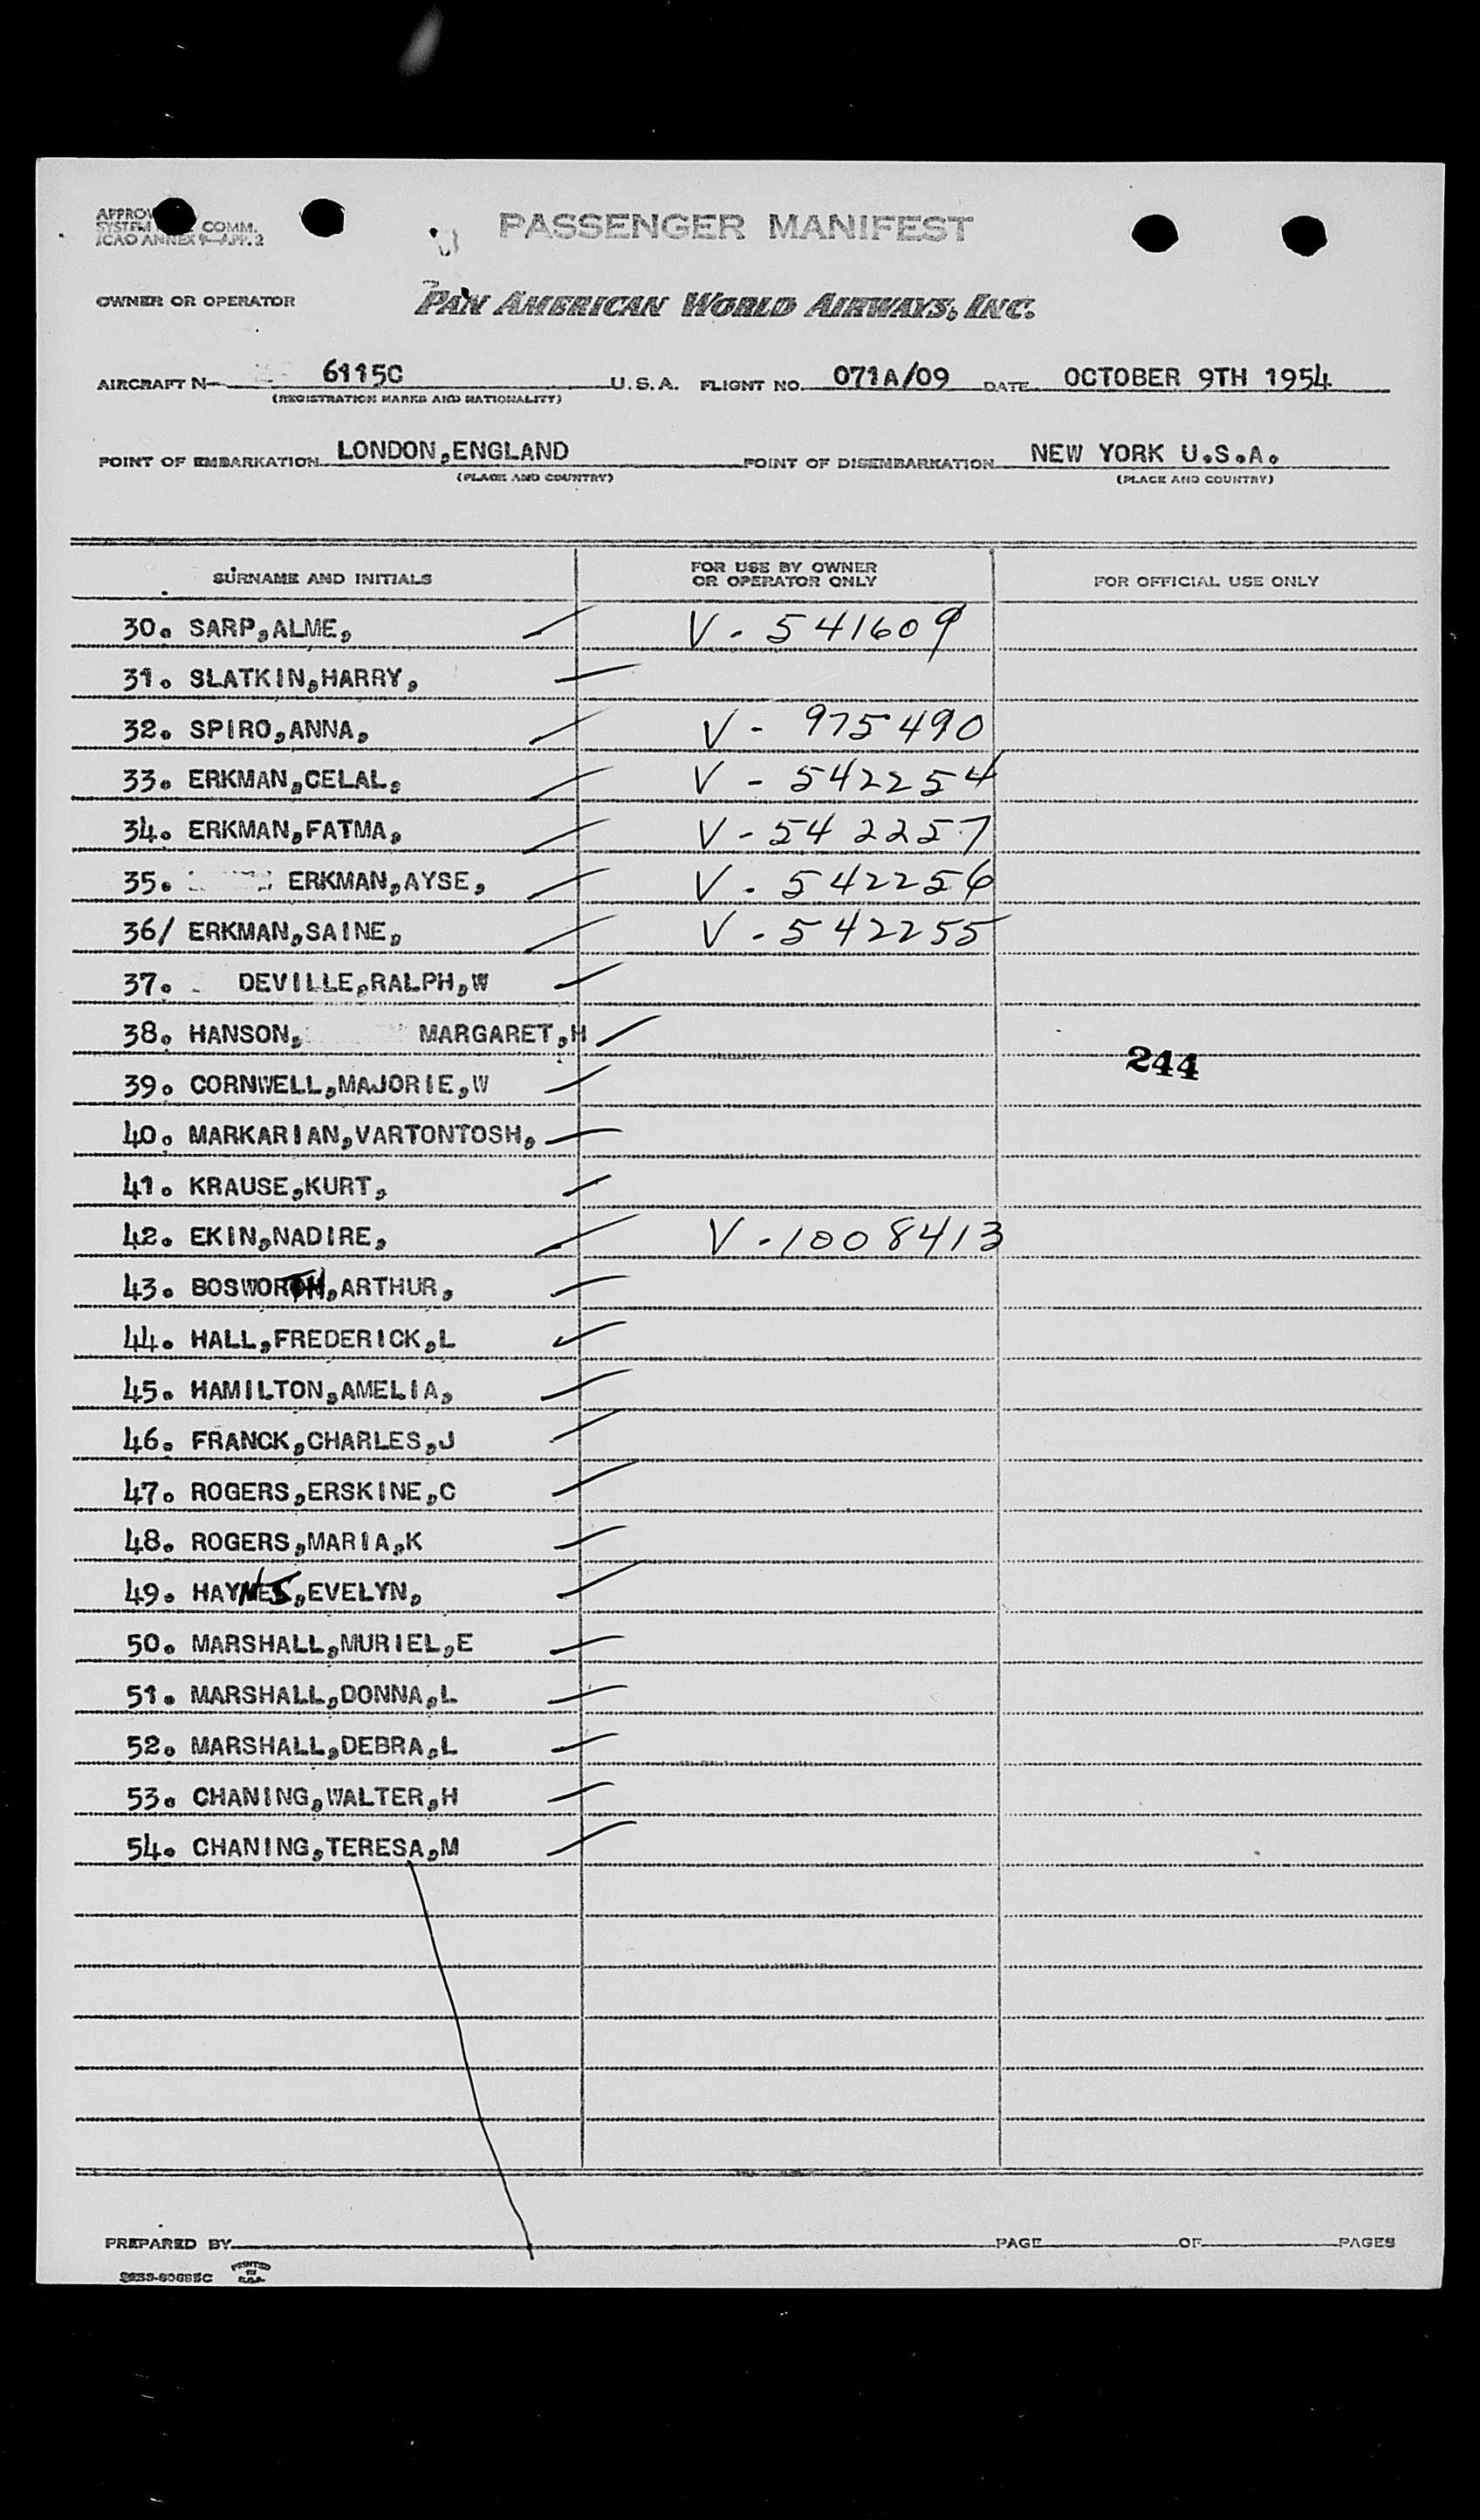 PASSENGER MANIFEST
COMM.
ICAO ANNEX 9—APP. 2
OWNER OR OPERATOR PAN AMERICAN WORLD AIRWAYS, INC.
AIRCRAFT N— 6115C U.S.A. FLIGHT NO. 071A/09 DATE OCTOBER 9TH 1954
(REGISTRATION MARKS AND NATIONALITY)
POINT OF EMBARKATION LONDON,ENGLAND POINT OF DISEMBARKATION NEW YORK U.S.A.
(PLACE AND COUNTRY) (PLACE AND COUNTRY)
SURNAME AND INITIALS FOR USE BY OWNER OR OPERATOR ONLY FOR OFFICIAL USE ONLY
30. SARP,ALME, V - 541609
31. SLATKIN,HARRY,
32. SPIRO,ANNA, V - 975490
33. ERKMAN,CELAL, V - 542254
34. ERKMAN,FATMA, V - 542257
35. ERKMAN,AYSE, V - 542256
36/ ERKMAN,SAINE, V - 542255
37. DEVILLE,RALPH,W
38. HANSON, MARGARET,H
244
39. CORNWELL,MAJORIE,W
40. MARKARIAN,VARTONTOSH,
41. KRAUSE,KURT,
42. EKIN,NADIRE, V - 1008413
43. BOSWORTH,ARTHUR,
44. HALL,FREDERICK,L
45. HAMILTON,AMELIA,
46. FRANCK,CHARLES,J
47. ROGERS,ERSKINE,C
48. ROGERS,MARIA,K
49. HAYNES,EVELYN,
50. MARSHALL,MURIEL,E
51. MARSHALL,DONNA,L
52. MARSHALL,DEBRA,L
53. CHANING,WALTER,H
54. CHANING,TERESA,M
PREPARED BY PAGE OF PAGES
PRINTED IN U.S.A.